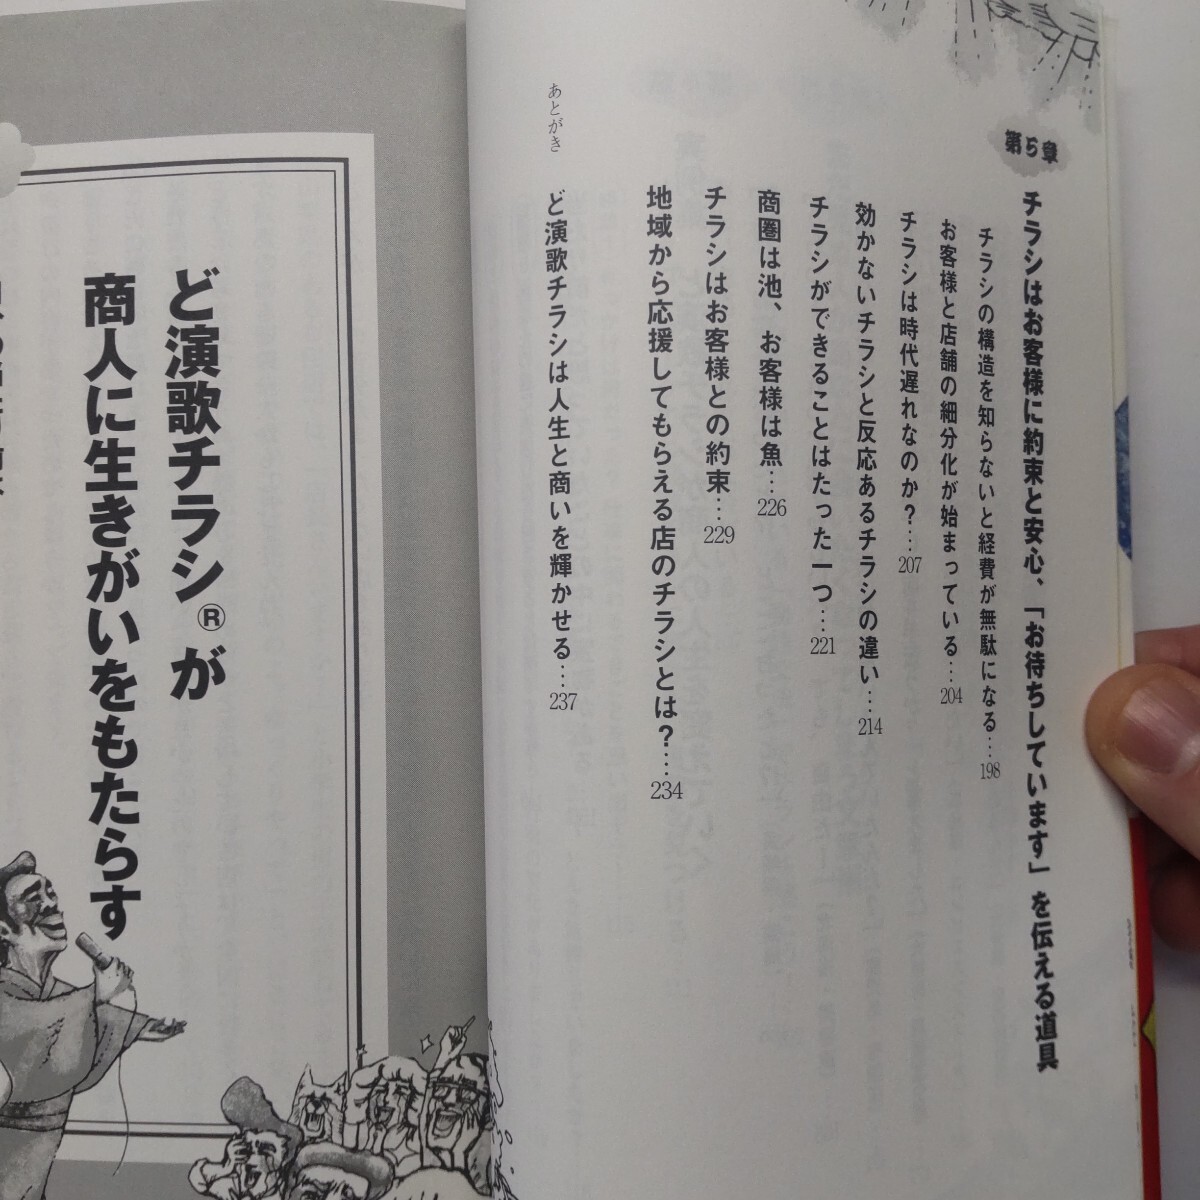 第5章
チラシはお客様に約束と安心、「お待ちしています」を伝える道具
チラシの構造を知らないと経費が無駄になる…198
お客様と店舗の細分化が始まっている…204
チラシは時代遅れなのか?…207
効かないチラシと反応あるチラシの違い…214
チラシができることはたった一つ…221
商圏は池、お客様は魚…226
チラシはお客様との約束…229
地域から応援してもらえる店のチラシとは?…234
あとがき
ど演歌チラシは人生と商いを輝かせる…237
ど演歌チラシ®が
商人に生きがいをもたらす